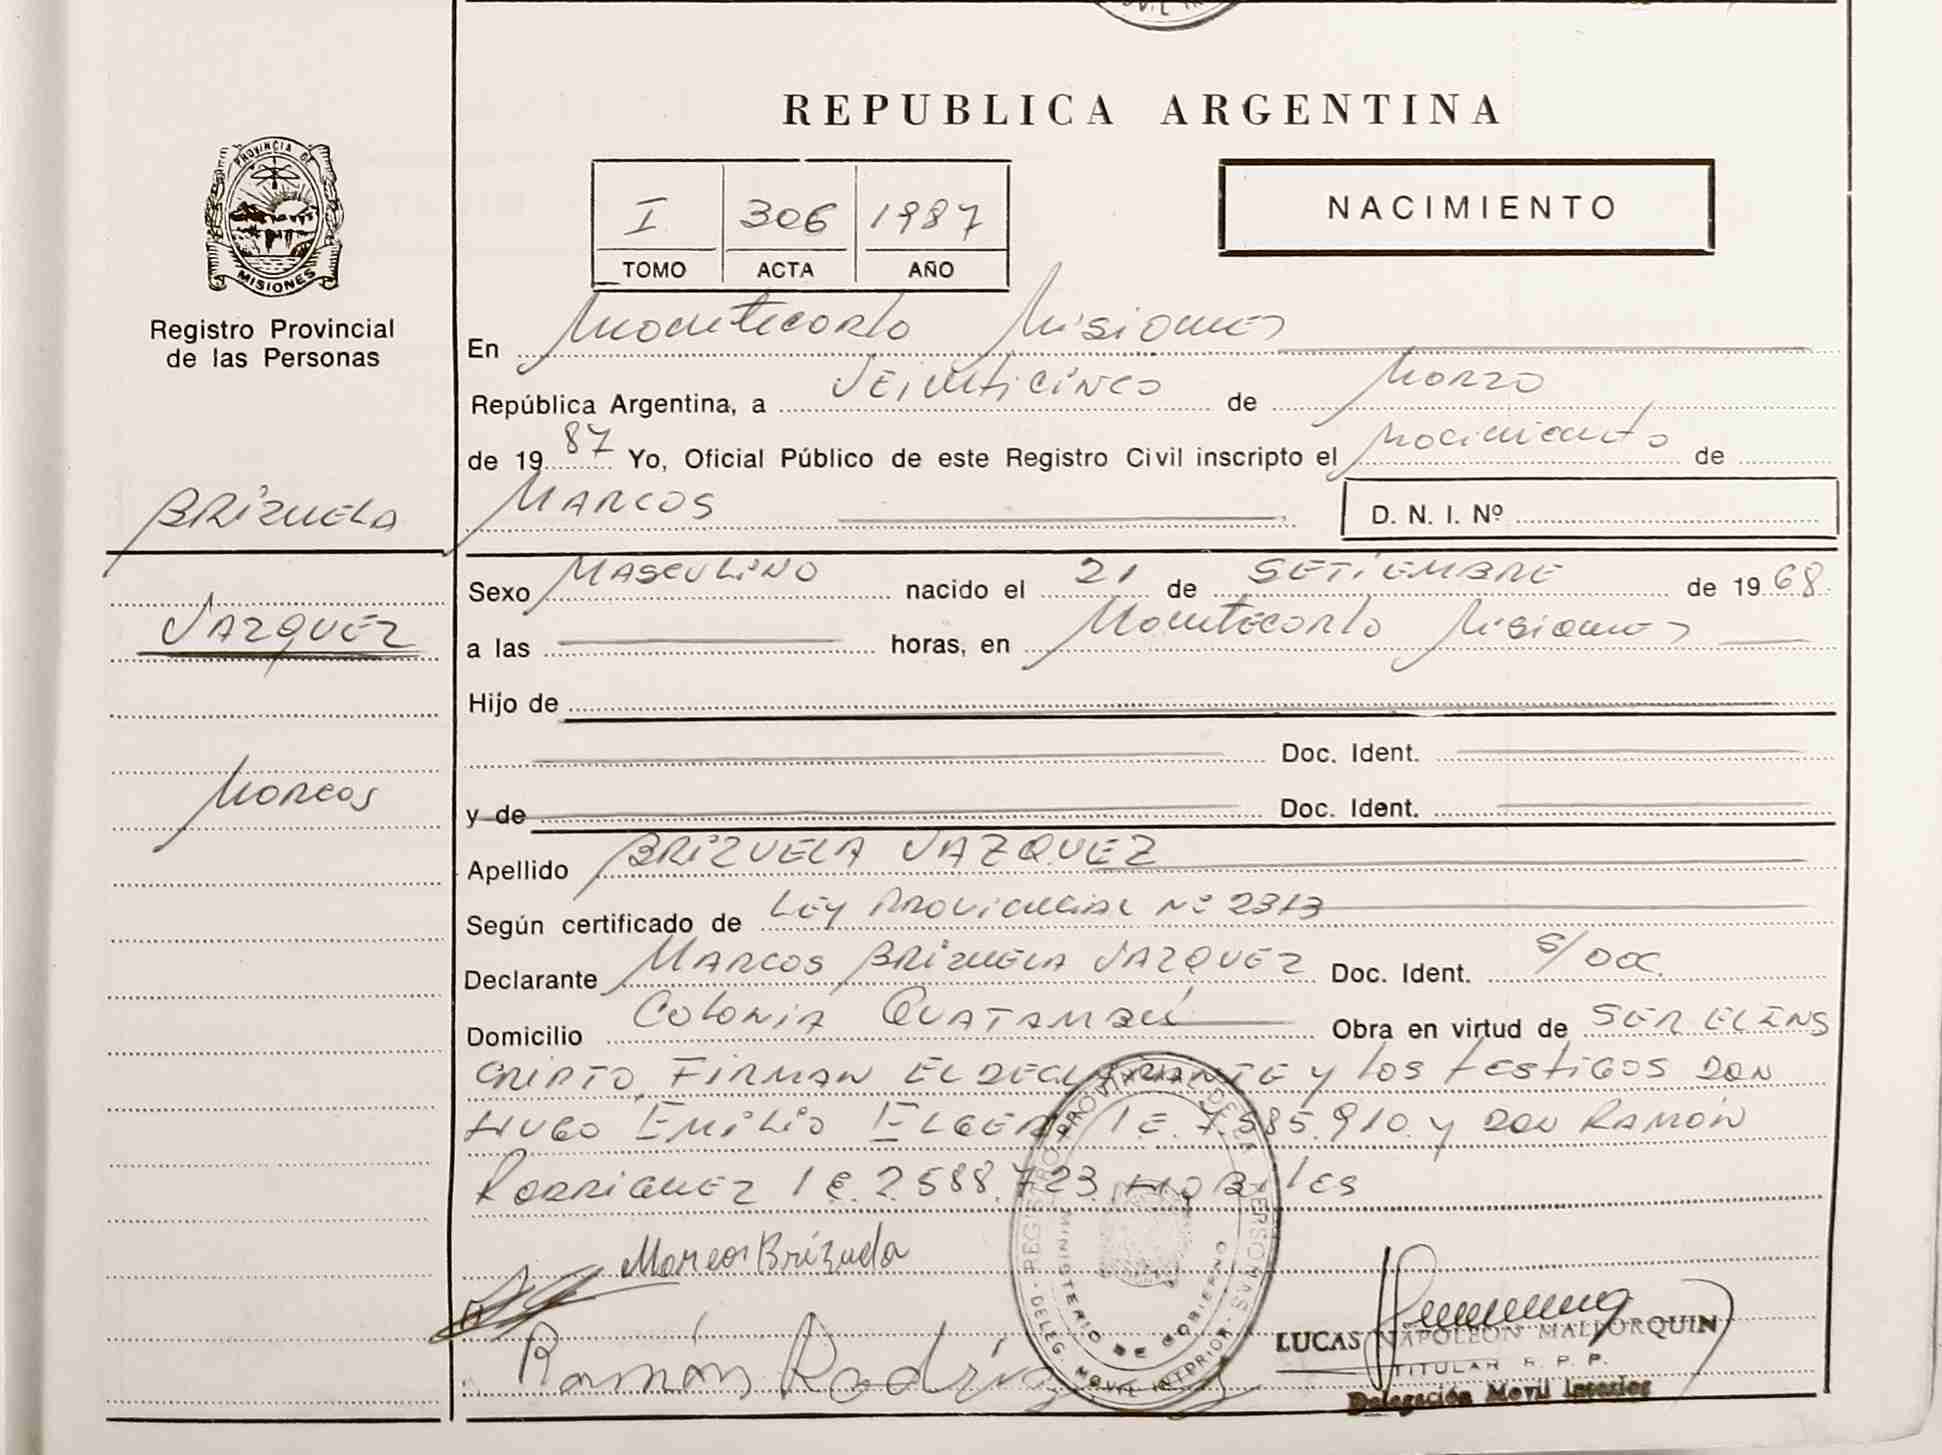 REPUBLICA ARGENTINA
PROVINCIA DE
MISIONES
Registro Provincial
de las Personas
I 306 1987
TOMO ACTA AÑO
NACIMIENTO
En Montecarlo Misiones
República Argentina, a Veinticinco de Marzo
de 1987 Yo, Oficial Público de este Registro Civil inscripto el Nacimiento de
MARCOS D. N. I. Nº
BRIZUELA
VAZQUEZ
Marcos
Sexo MASCULINO nacido el 21 de SETIEMBRE de 1968
a las horas, en Montecarlo Misiones
Hijo de
Doc. Ident.
y de Doc. Ident.
Apellido BRIZUELA VAZQUEZ
Según certificado de LEY PROVINCIAL Nº 2313
Declarante MARCOS BRIZUELA VAZQUEZ Doc. Ident. S/DOC.
Domicilio COLONIA GUATAMBÚ Obra en virtud de SER EL INS
CRIPTO, FIRMAN EL DECLARANTE y los testigos DON
HUGO EMILIO ELGER 1E. 7.585.910 y DON RAMÓN
RODRIGUEZ 1E. 2.588.723 HABILES
Marcos Brizuela
Ramón Rodríguez
REGISTRO PROVINCIAL DE LAS PERSONAS
MINISTERIO DE GOBIERNO
DELEG. MOVIL INTERIOR
LUCAS NAPOLEON MALLORQUIN
TITULAR R. P. P.
Delegación Movil Interior